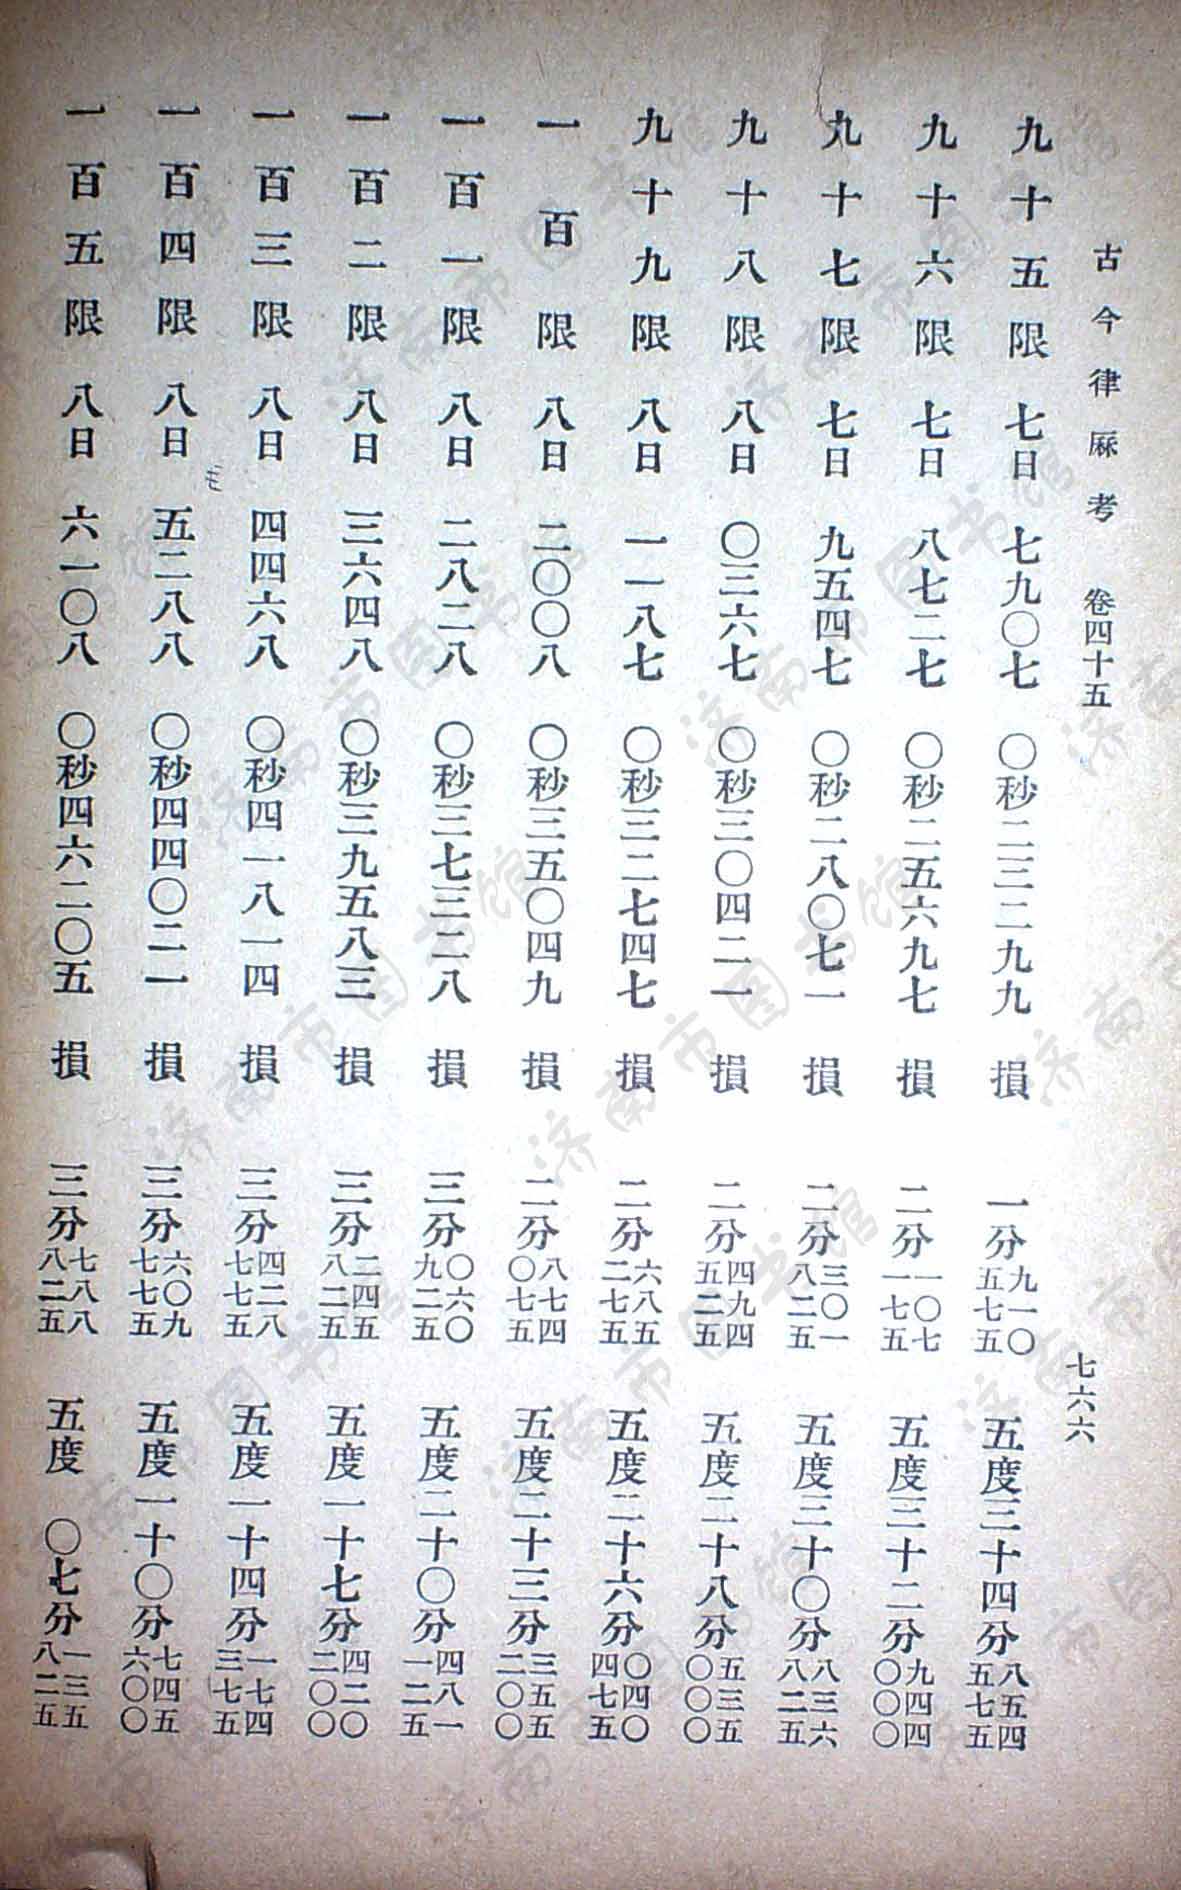 古今律厤考 卷四十五 七六六
九十五限 七日 七九〇七 〇秒二三二九九 損 一分九一〇五七五 五度三十四分八五四五七五
九十六限 七日 八七二七 〇秒二五六九七 損 二分一〇七一七五 五度三十二分九四四〇〇〇
九十七限 七日 九五四七 〇秒二八〇七一 損 二分三〇一八二五 五度三十〇分八三六八二五
九十八限 八日 〇三六七 〇秒三〇四二一 損 二分四九四五二五 五度二十八分五三五〇〇〇
九十九限 八日 一一八七 〇秒三二七四七 損 二分六八五二七五 五度二十六分〇四〇四七五
一百限 八日 二〇〇八 〇秒三五〇四九 損 二分八七四〇七五 五度二十三分三五五二〇〇
一百一限 八日 二八二八 〇秒三七三二八 損 三分〇六〇九二五 五度二十〇分四八一一二五
一百二限 八日 三六四八 〇秒三九五八三 損 三分二四五八二五 五度一十七分四二〇二〇〇
一百三限 八日 四四六八 〇秒四一八一四 損 三分四二八七七五 五度一十四分一七四三七五
一百四限 八日 五二八八 〇秒四四〇二一 損 三分六〇九七七五 五度一十〇分七四五六〇〇
一百五限 八日 六一〇八 〇秒四六二〇五 損 三分七八八八二五 五度 〇七分一三五八二五
济南市图书馆